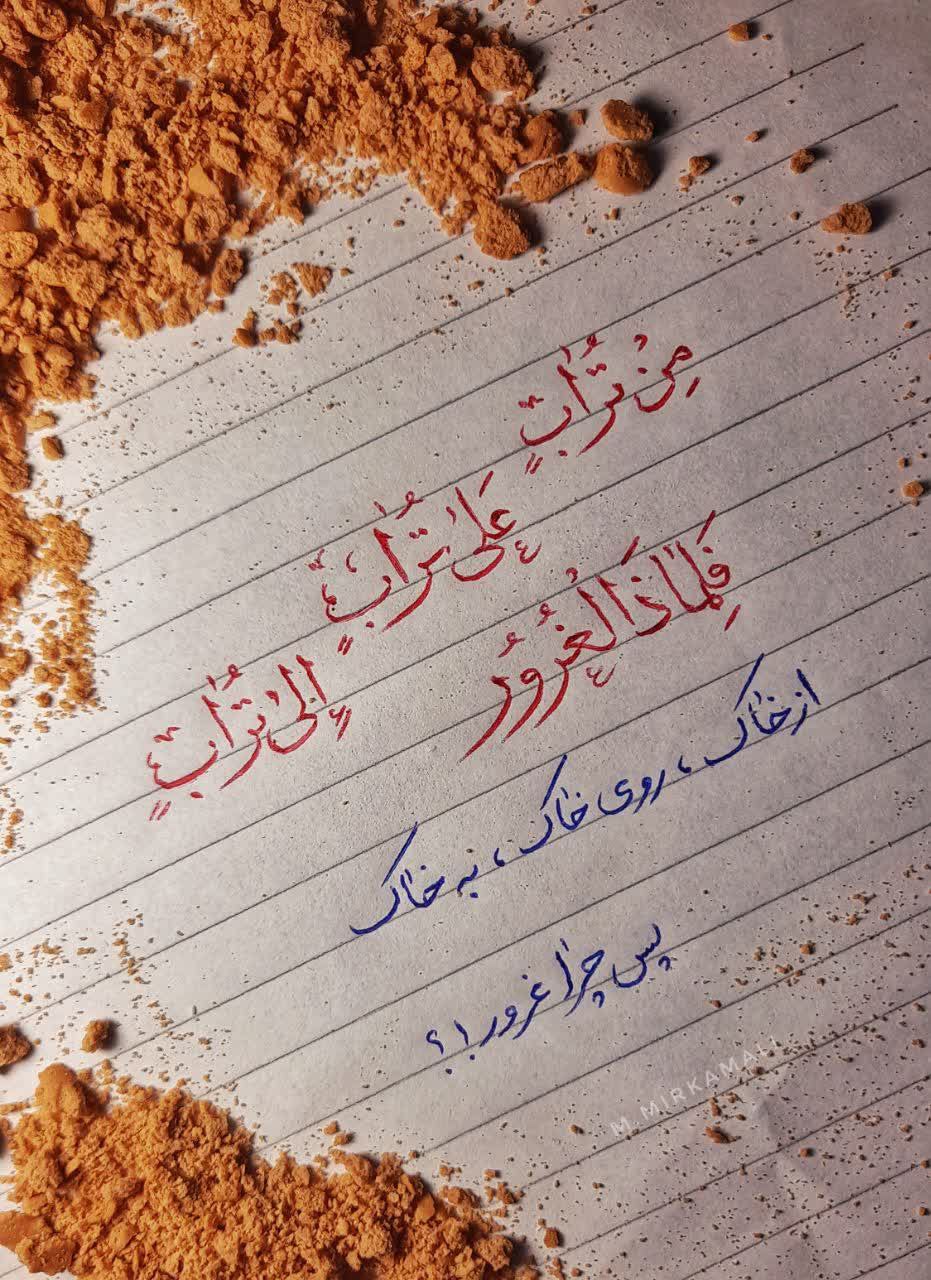 مِنْ تُرٰابٍ
عَلىٰ تُرٰابٍ
إِلىٰ تُرٰابٍ
فَلِمٰاذَا لْغُرُورُ
از خاک، روی خاک، به خاک
پس چرا غرور!؟
M.MIRKAMALI